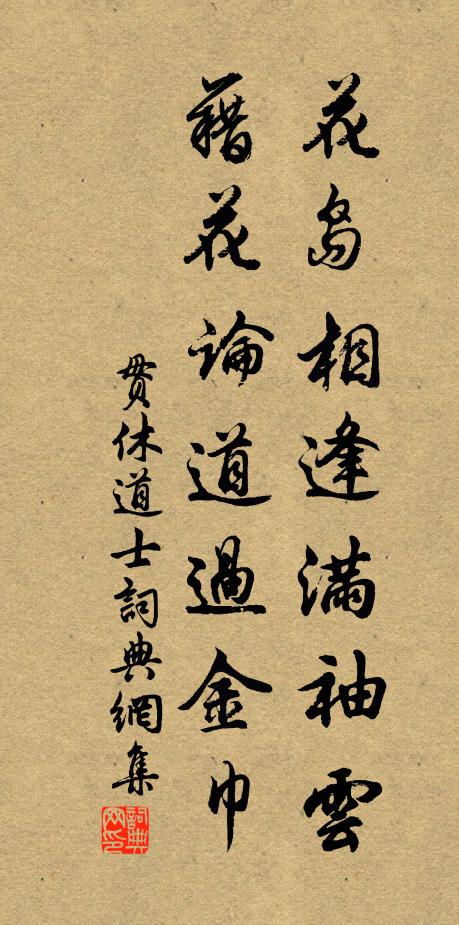 花島相逢滿袖雲
藉花論道過金巾
貫休道士詞典網集
詞典网印